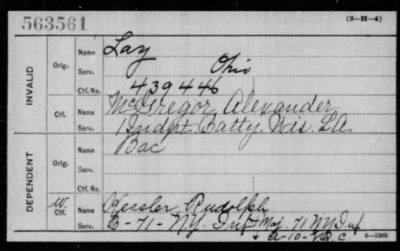 563561
(3-H-4)
INVALID
Orig.
Name Lay
Serv. Ohio
Ctf. No. 439446
Ctf.
Name McGregor Alexander
Serv. 1 Indpt. Batty. Wis. L.A.
DEPENDENT
Orig.
Name Bac
Serv.
Ctf. No.
W.
Ctf.
Name Kessler Rudolph
Serv. E-71-N.Y. Inf & Maj. 71 NY Inf
& A-10-V.R.C
6-1369